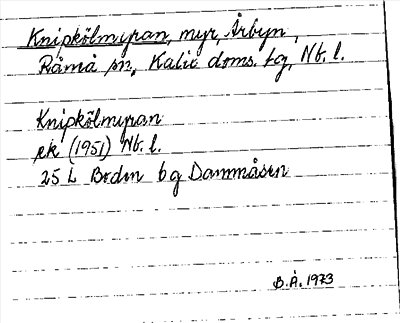 Knipkölmyran, myr, Årbyn,
Råneå sn, Kalix doms. tg, Nb. l.
Knipkölmyran
ek (1951) Nb. l.
25 L Boden bg Dammåsen
B.Å. 1973